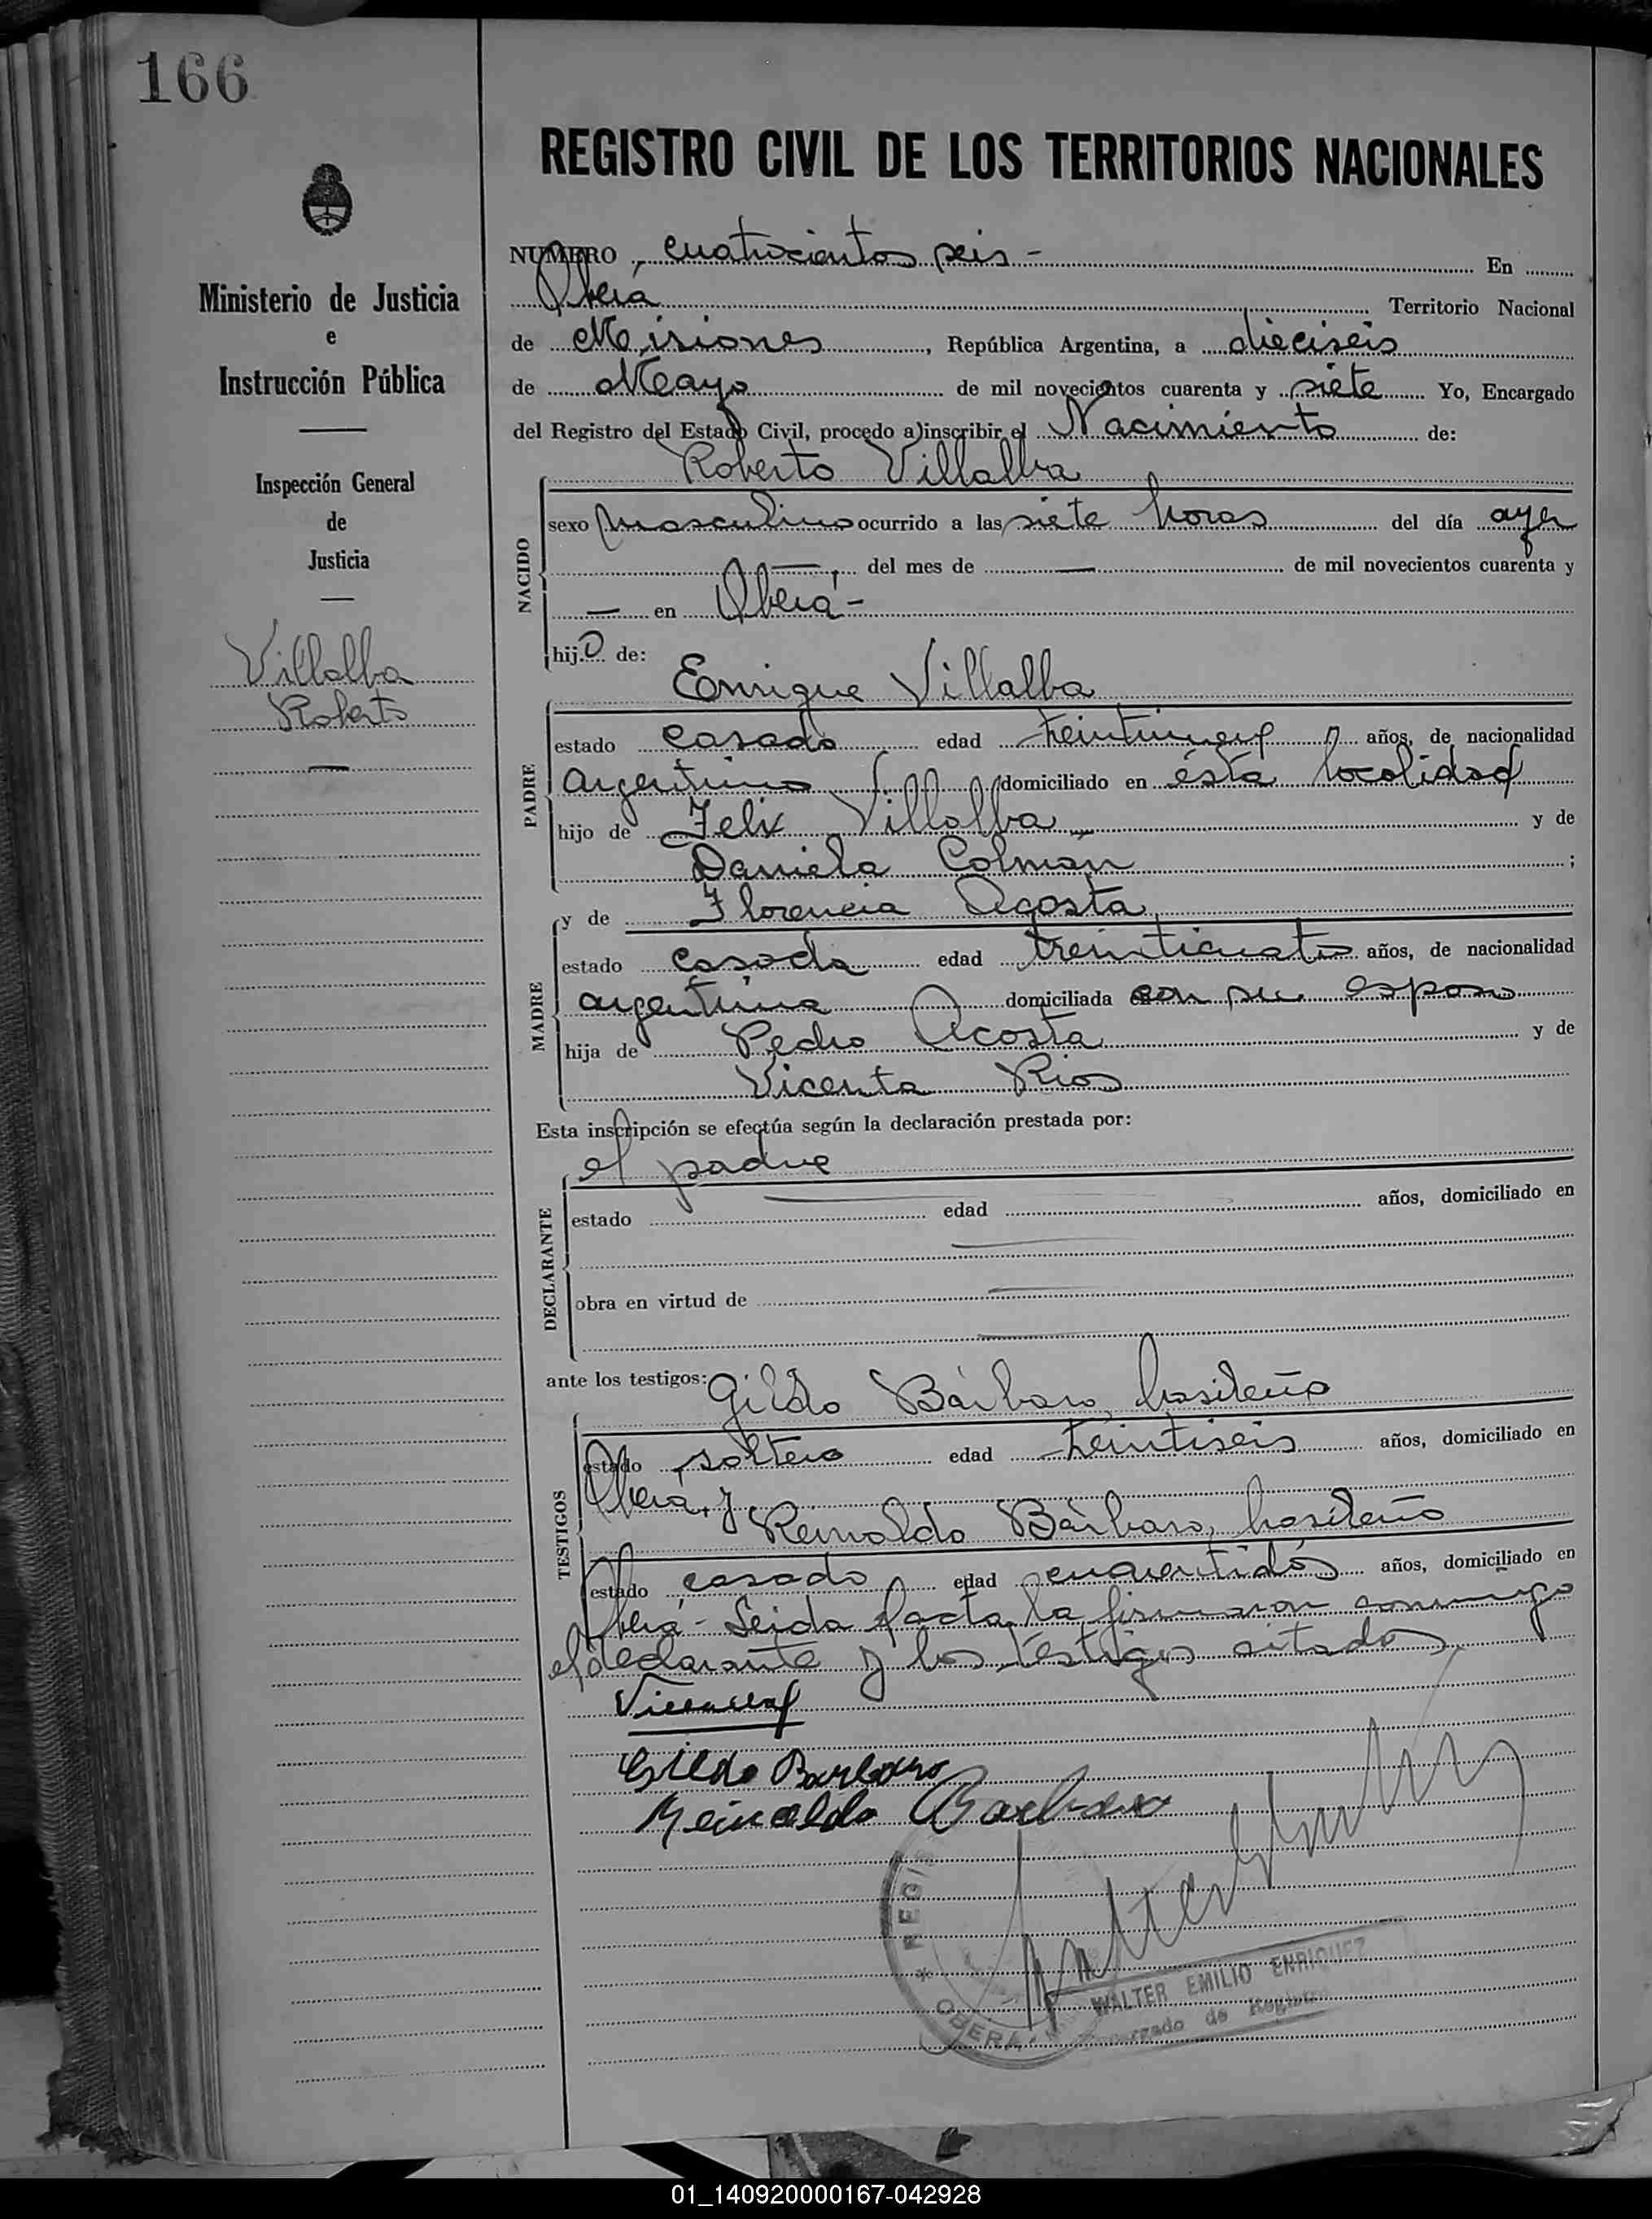 166
REGISTRO CIVIL DE LOS TERRITORIOS NACIONALES
Ministerio de Justicia
e
Instrucción Pública
Inspección General
de
Justicia
Villalba
Roberto
NUMERO cuatrocientos seis - En
Oberá Territorio Nacional
de Misiones, República Argentina, a dieciseis
de Mayo de mil novecientos cuarenta y siete Yo, Encargado
del Registro del Estado Civil, procedo a inscribir el Nacimiento de:
Roberto Villalba
NACIDO
sexo masculino ocurrido a las siete horas del día ayer
—, del mes de — de mil novecientos cuarenta y
— en Oberá-
hijo de:
Enrique Villalba
PADRE
estado casado edad treintinueve años, de nacionalidad
argentino domiciliado en ésta localidad
hijo de Felix Villalba y de
Daniela Colmán ;
MADRE
y de Florencia Acosta
estado casada edad treinticuatro años, de nacionalidad
argentina domiciliada con su esposo
hija de Pedro Acosta y de
Vicenta Rios
Esta inscripción se efectúa según la declaración prestada por:
el padre
DECLARANTE
estado — edad años, domiciliado en
—
obra en virtud de —
—
ante los testigos: Gildo Bárbaro, brasileño
TESTIGOS
estado soltero edad treintiseis años, domiciliado en
Oberá, y
Reinoldo Bárbaro, brasileño
estado casado edad cuarentidós años, domiciliado en
Oberá- Leida el acta, la firmaron conmigo
el declarante y los testigos citados,
Gildo Barbaro
Reinoldo Barbaro
* REGIS
OBERA
WALTER EMILIO ENRIQUEZ
Encargado de Registro
01_140920000167-042928